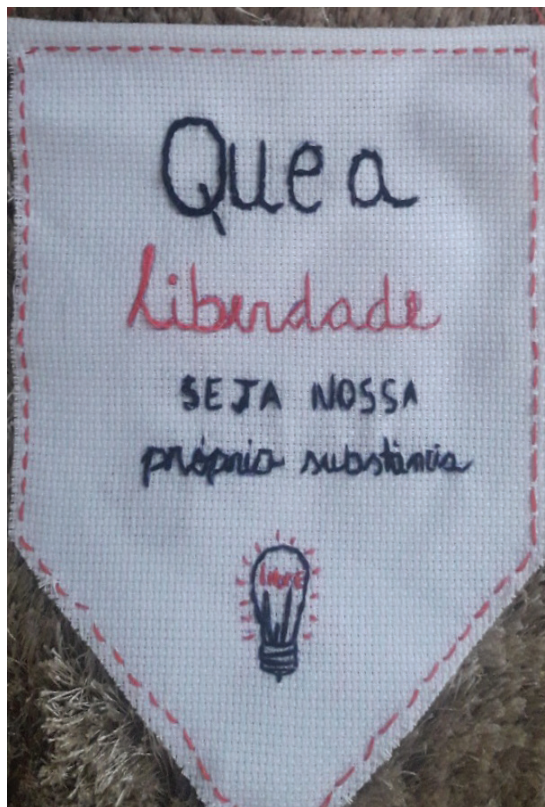 Que a
Liberdade
SEJA NOSSA
própria substância
livre